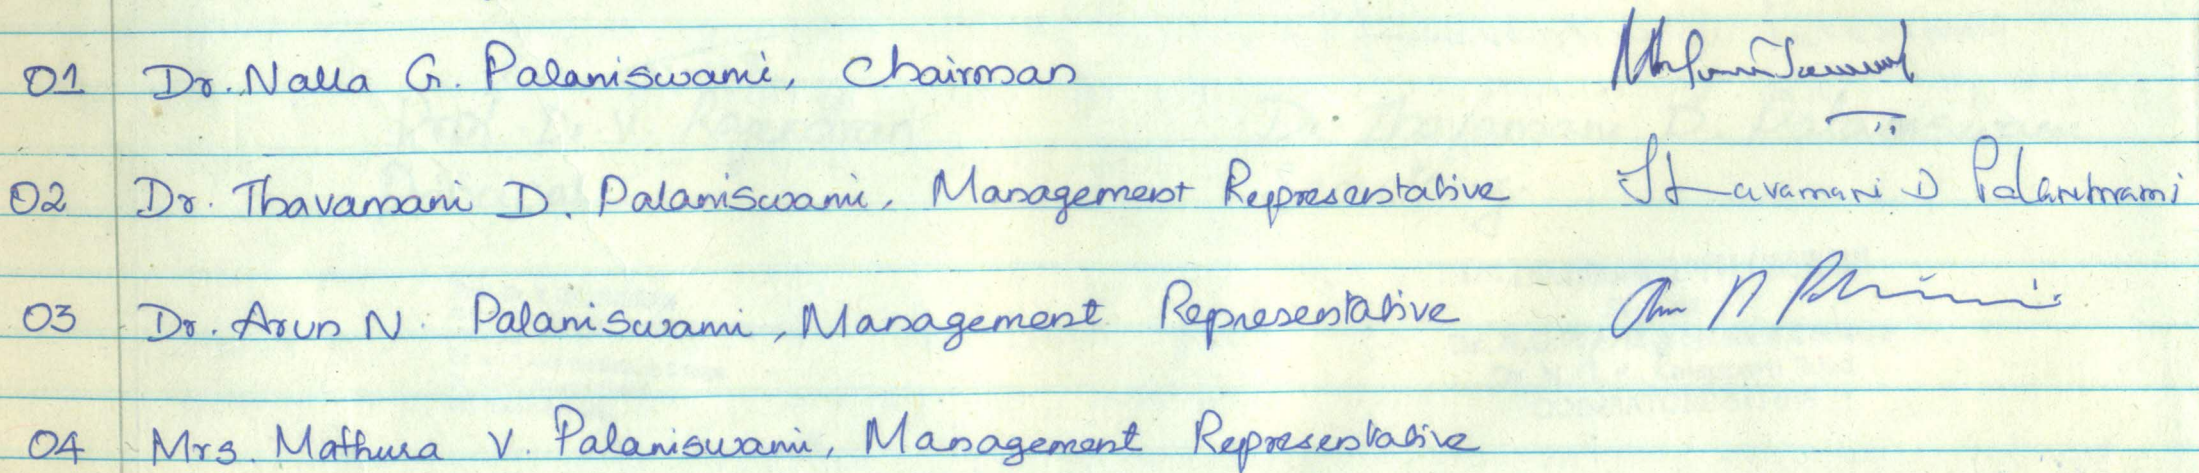 01 Dr. Nalla G. Palaniswami, Chairman
02 Dr. Thavamani D. Palaniswami, Management Representative Thavamani D Palaniswami
03 Dr. Arun N. Palaniswami, Management Representative
04 Mrs. Mathura V. Palaniswami, Management Representative